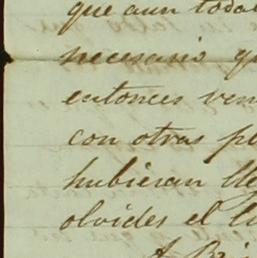 que aun toda
necesario q
entonces ven
con otras pe
hubieran lle
olvides el
A Bri